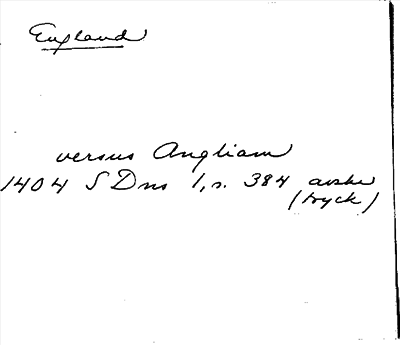 England
versus Angliam
1404 S Dns 1, s. 384 avskr
(tryck)